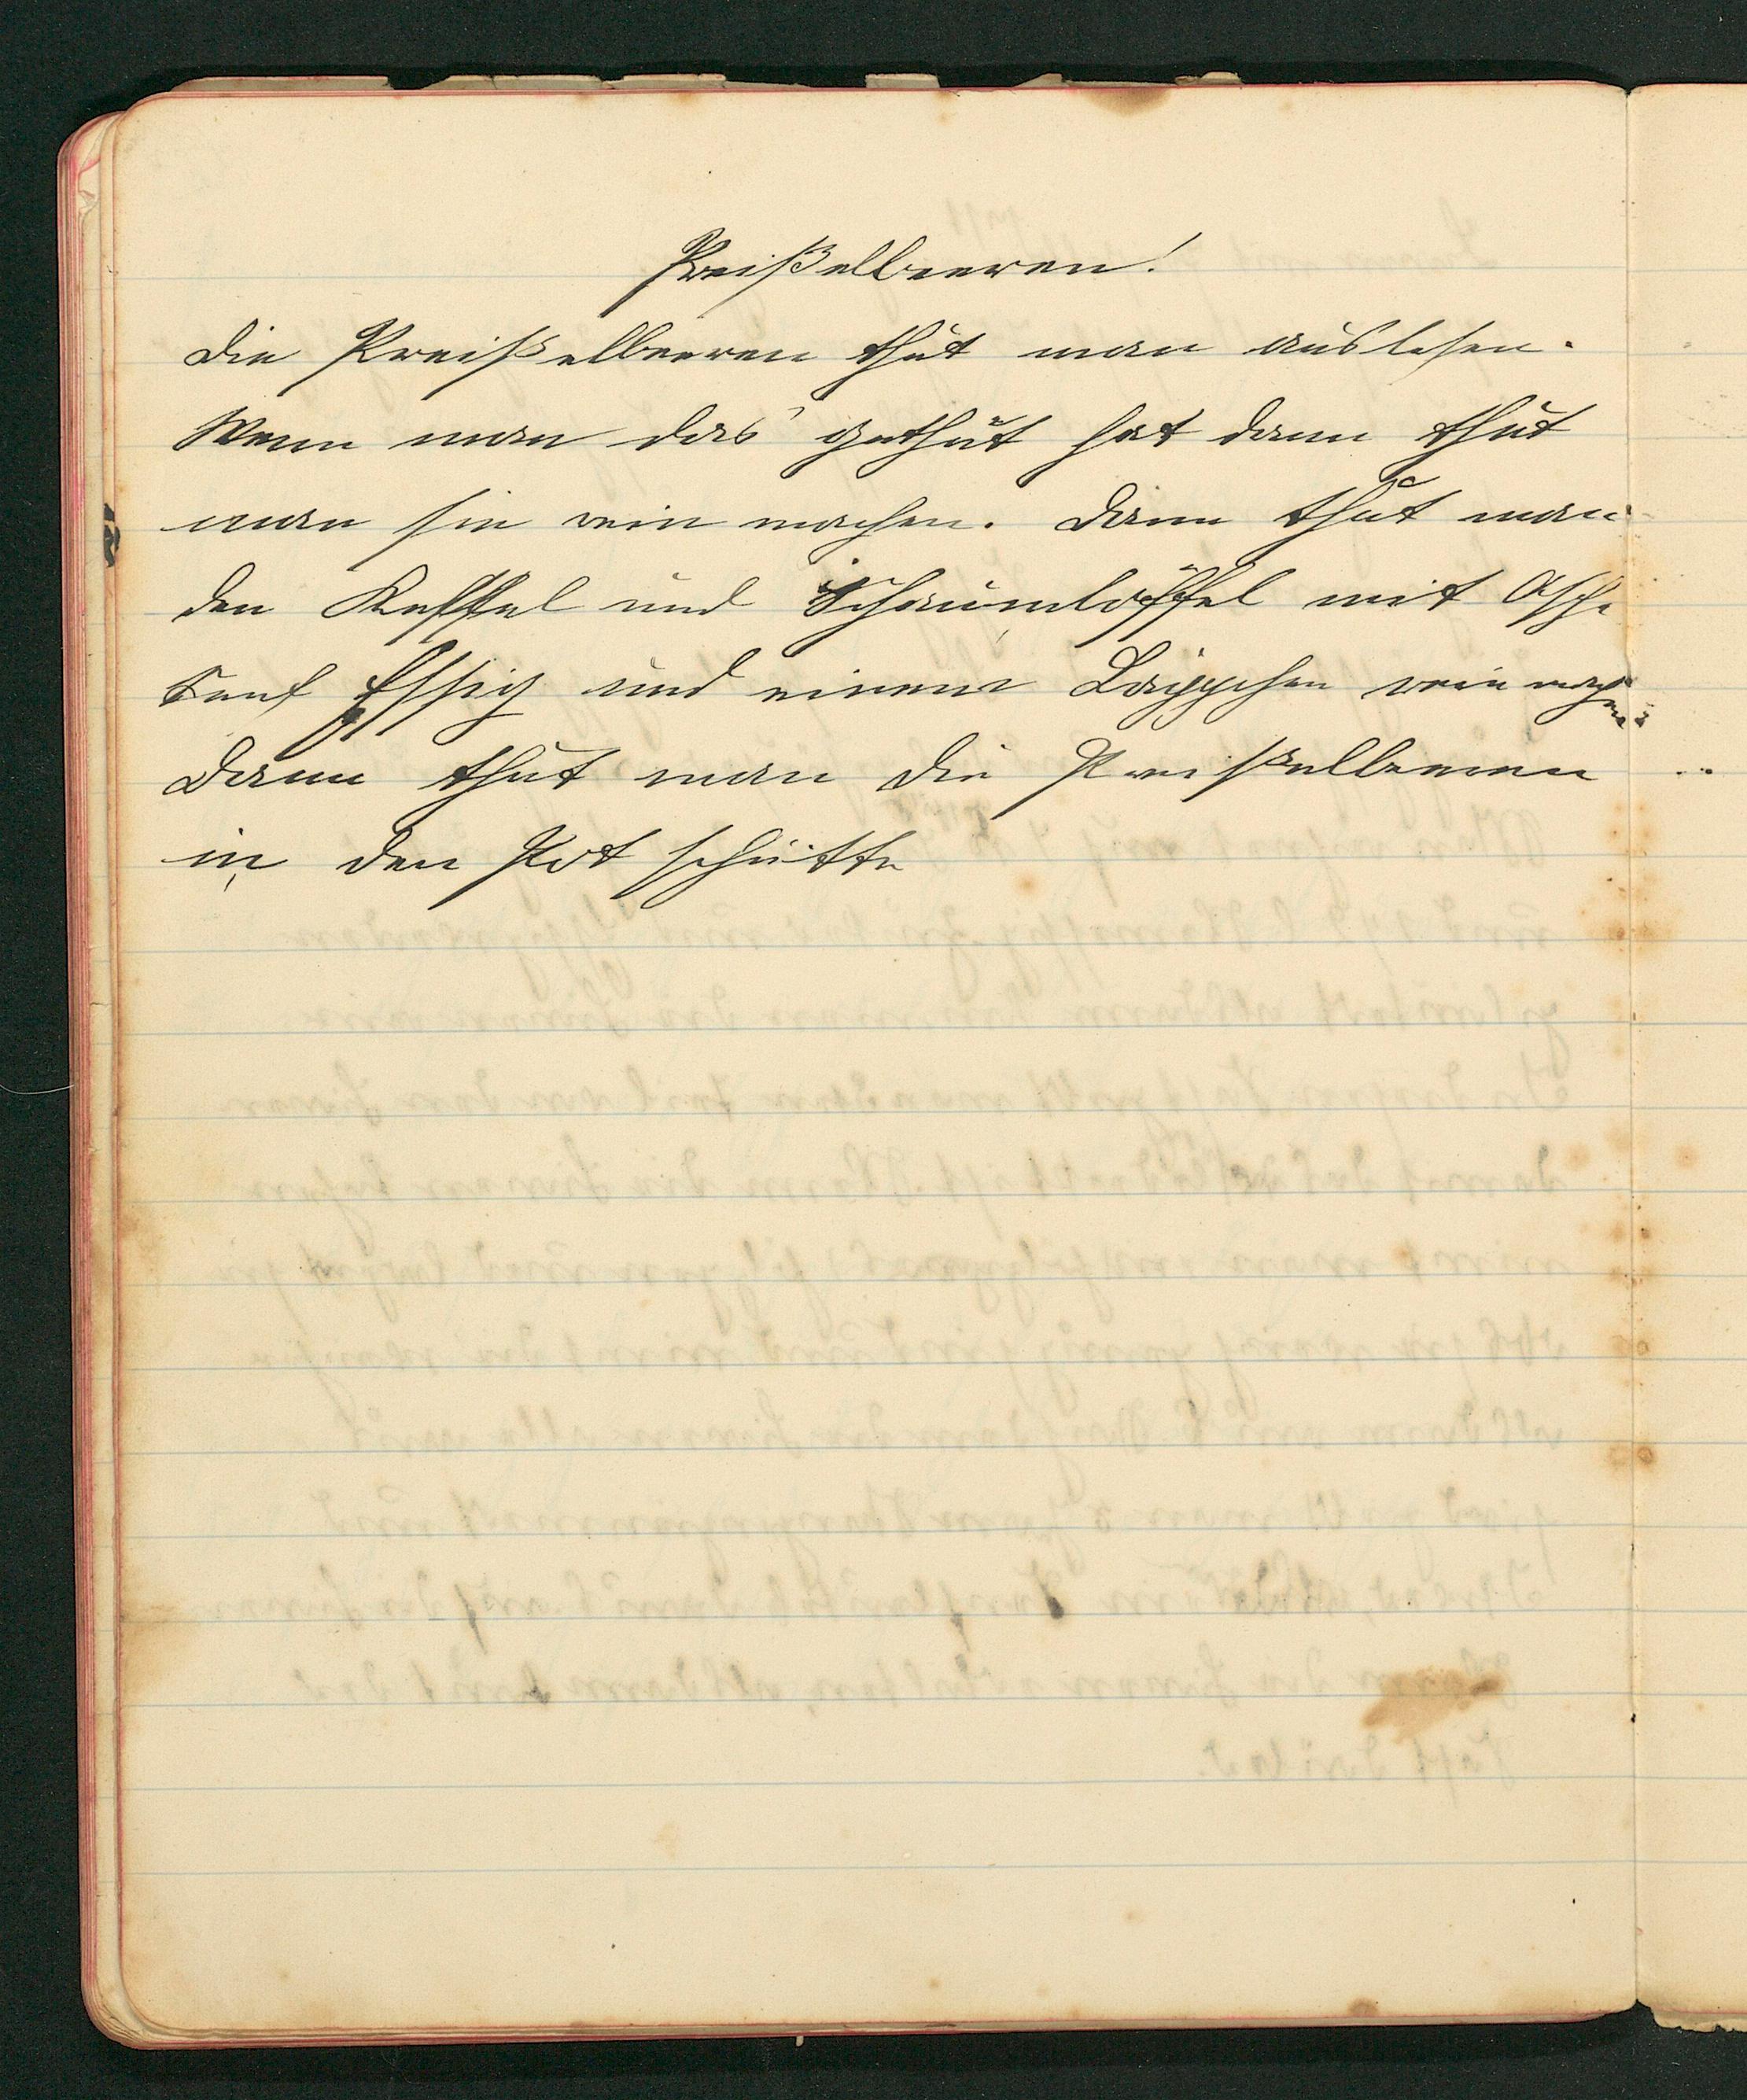 Preißelbeeren!
Die Preißelbeeren thut man auslesen.
Wenn man das gethut hat dann thut
man sie rein machen. Dann thut man
den Kessel und Schaumlöffel mit Asche
Senf Essig und einem Läppchen rein machen
Dann thut man die Preißelbeeren
in den Pot schütte